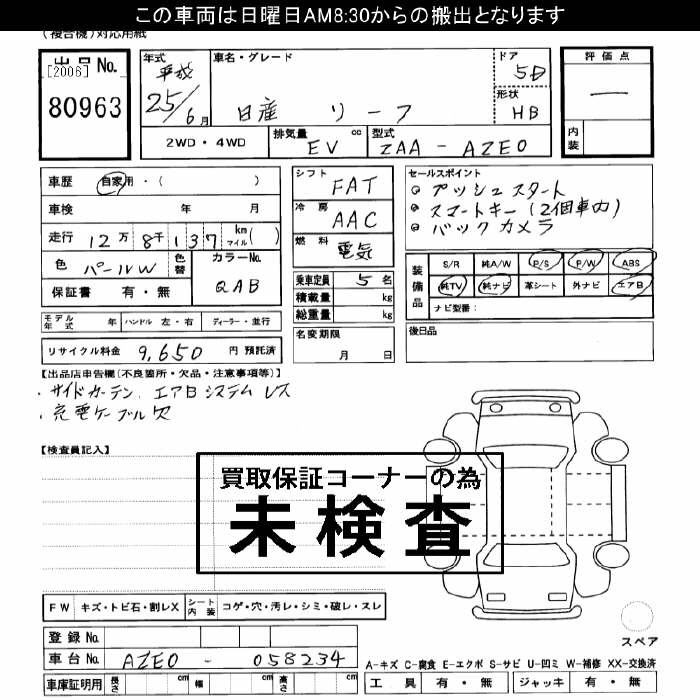 この車両は日曜日AM8:30からの搬出となります
(複合機)対応用紙
出品No.
[2006]
80963
年式
平成
25/6月
車名・グレード
日産 リーフ
ドア
5D
形状
HB
評価点
―
内装
2WD・4WD
排気量 EV cc
型式 ZAA-AZE0
車歴 自家用・( )
車検 年 月
走行 12万8千137 km マイル( )
色 パールW 色替
カラーNo.
QAB
保証書 有・無
シフト FAT
冷房 AAC
燃料 電気
乗車定員 5名
積載量 kg
総重量 kg
セールスポイント
プッシュスタート
スマートキー(2個車内)
バックカメラ
装備品
S/R 純A/W P/S P/W ABS
純TV 純ナビ 革シート 外ナビ エアB
ナビ型番:
モデル年式 年 ハンドル 左・右 ディーラー・並行
名変期限
月 日
後日品
リサイクル料金 9,650 円 預託済
【出品店申告欄(不良箇所・欠品・注意事項等)】
・サイドカーテン、エアBシステムレス
・充電ケーブル欠
【検査員記入】
買取保証コーナーの為
未検査
FW キズ・トビ石・割レX シート内装 コゲ・穴・汚レ・シミ・破レ・スレ
登録No.
車台No. AZE0-058234
車庫証明用 長さ cm 幅 cm 高さ cm
スペア
A-キズ C-腐食 E-エクボ S-サビ U-凹ミ W-補修 XX-交換済
工具 有・無 ジャッキ 有・無